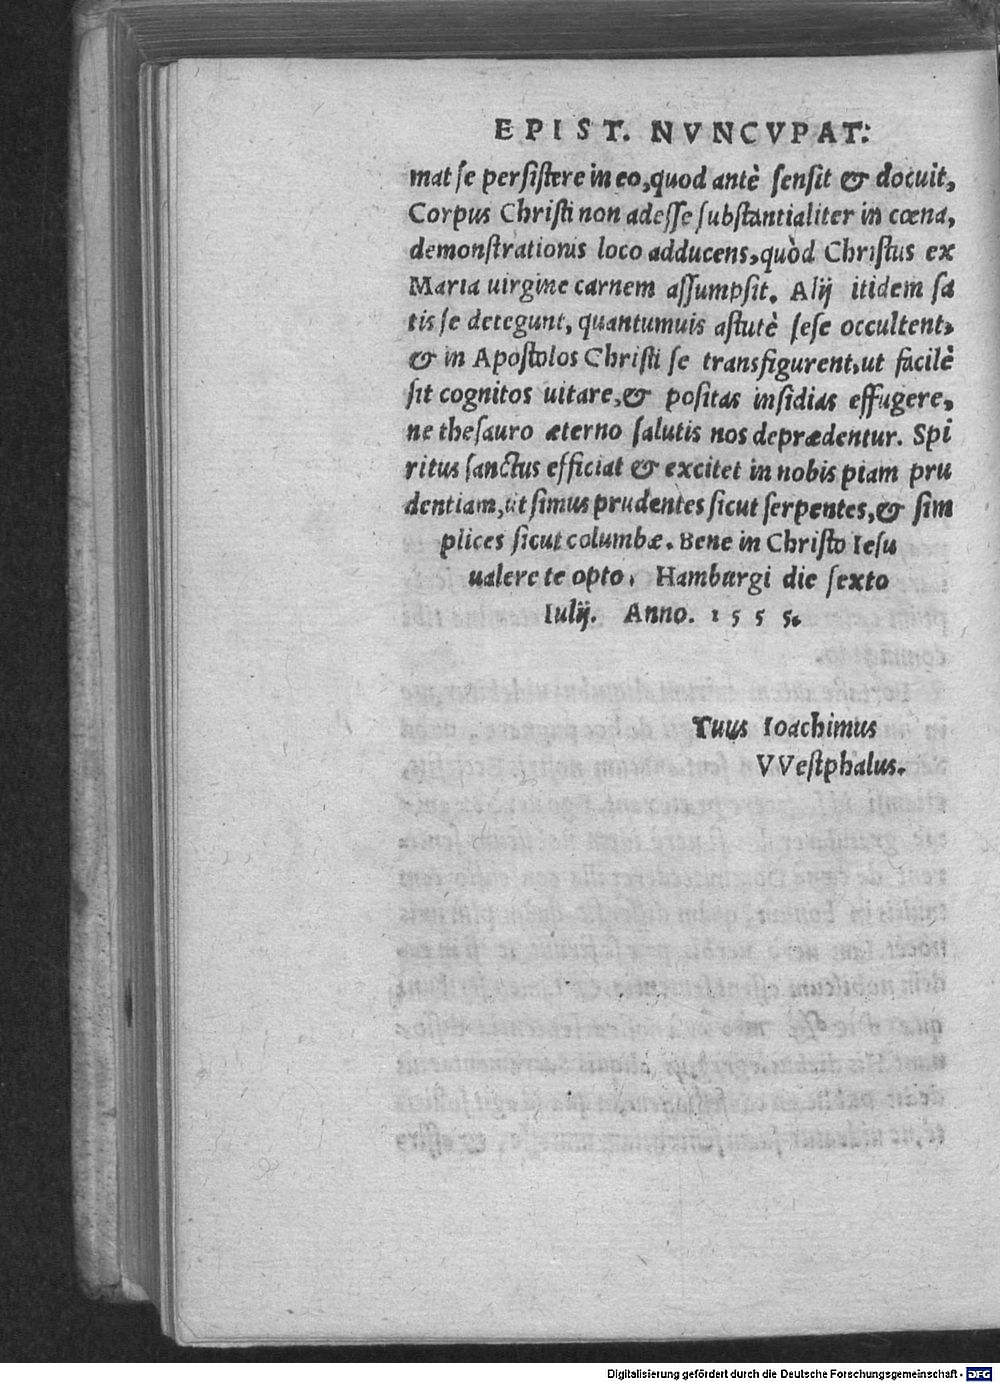 EPIST. NVNCVPAT:
mat ſe perſiſtere in eo, quod antè ſenſit & docuit,
Corpus Chriſti non adeſſe ſubſtantialiter in cœna,
demonſtrationis loco adducens, quòd Chriſtus ex
Maria uirgine carnem aſſumpſit. Alij itidem ſa
tis ſe detegunt, quantumuis aſtutè ſeſe occultent,
& in Apoſtolos Chriſti ſe transfigurent, ut facilè
ſit cognitos uitare, & poſitas inſidias effugere,
ne theſauro æterno ſalutis nos deprædentur. Spi
ritus ſanctus efficiat & excitet in nobis piam pru
dentiam, ut ſimus prudentes ſicut ſerpentes, & ſim
plices ſicut columbæ. Bene in Chriſto Ieſu
ualere te opto. Hamburgi die ſexto
Iulij. Anno. 1555.
Tuus Ioachimus
VVeſtphalus.
Digitalisierung gefördert durch die Deutsche Forschungsgemeinschaft - DFG